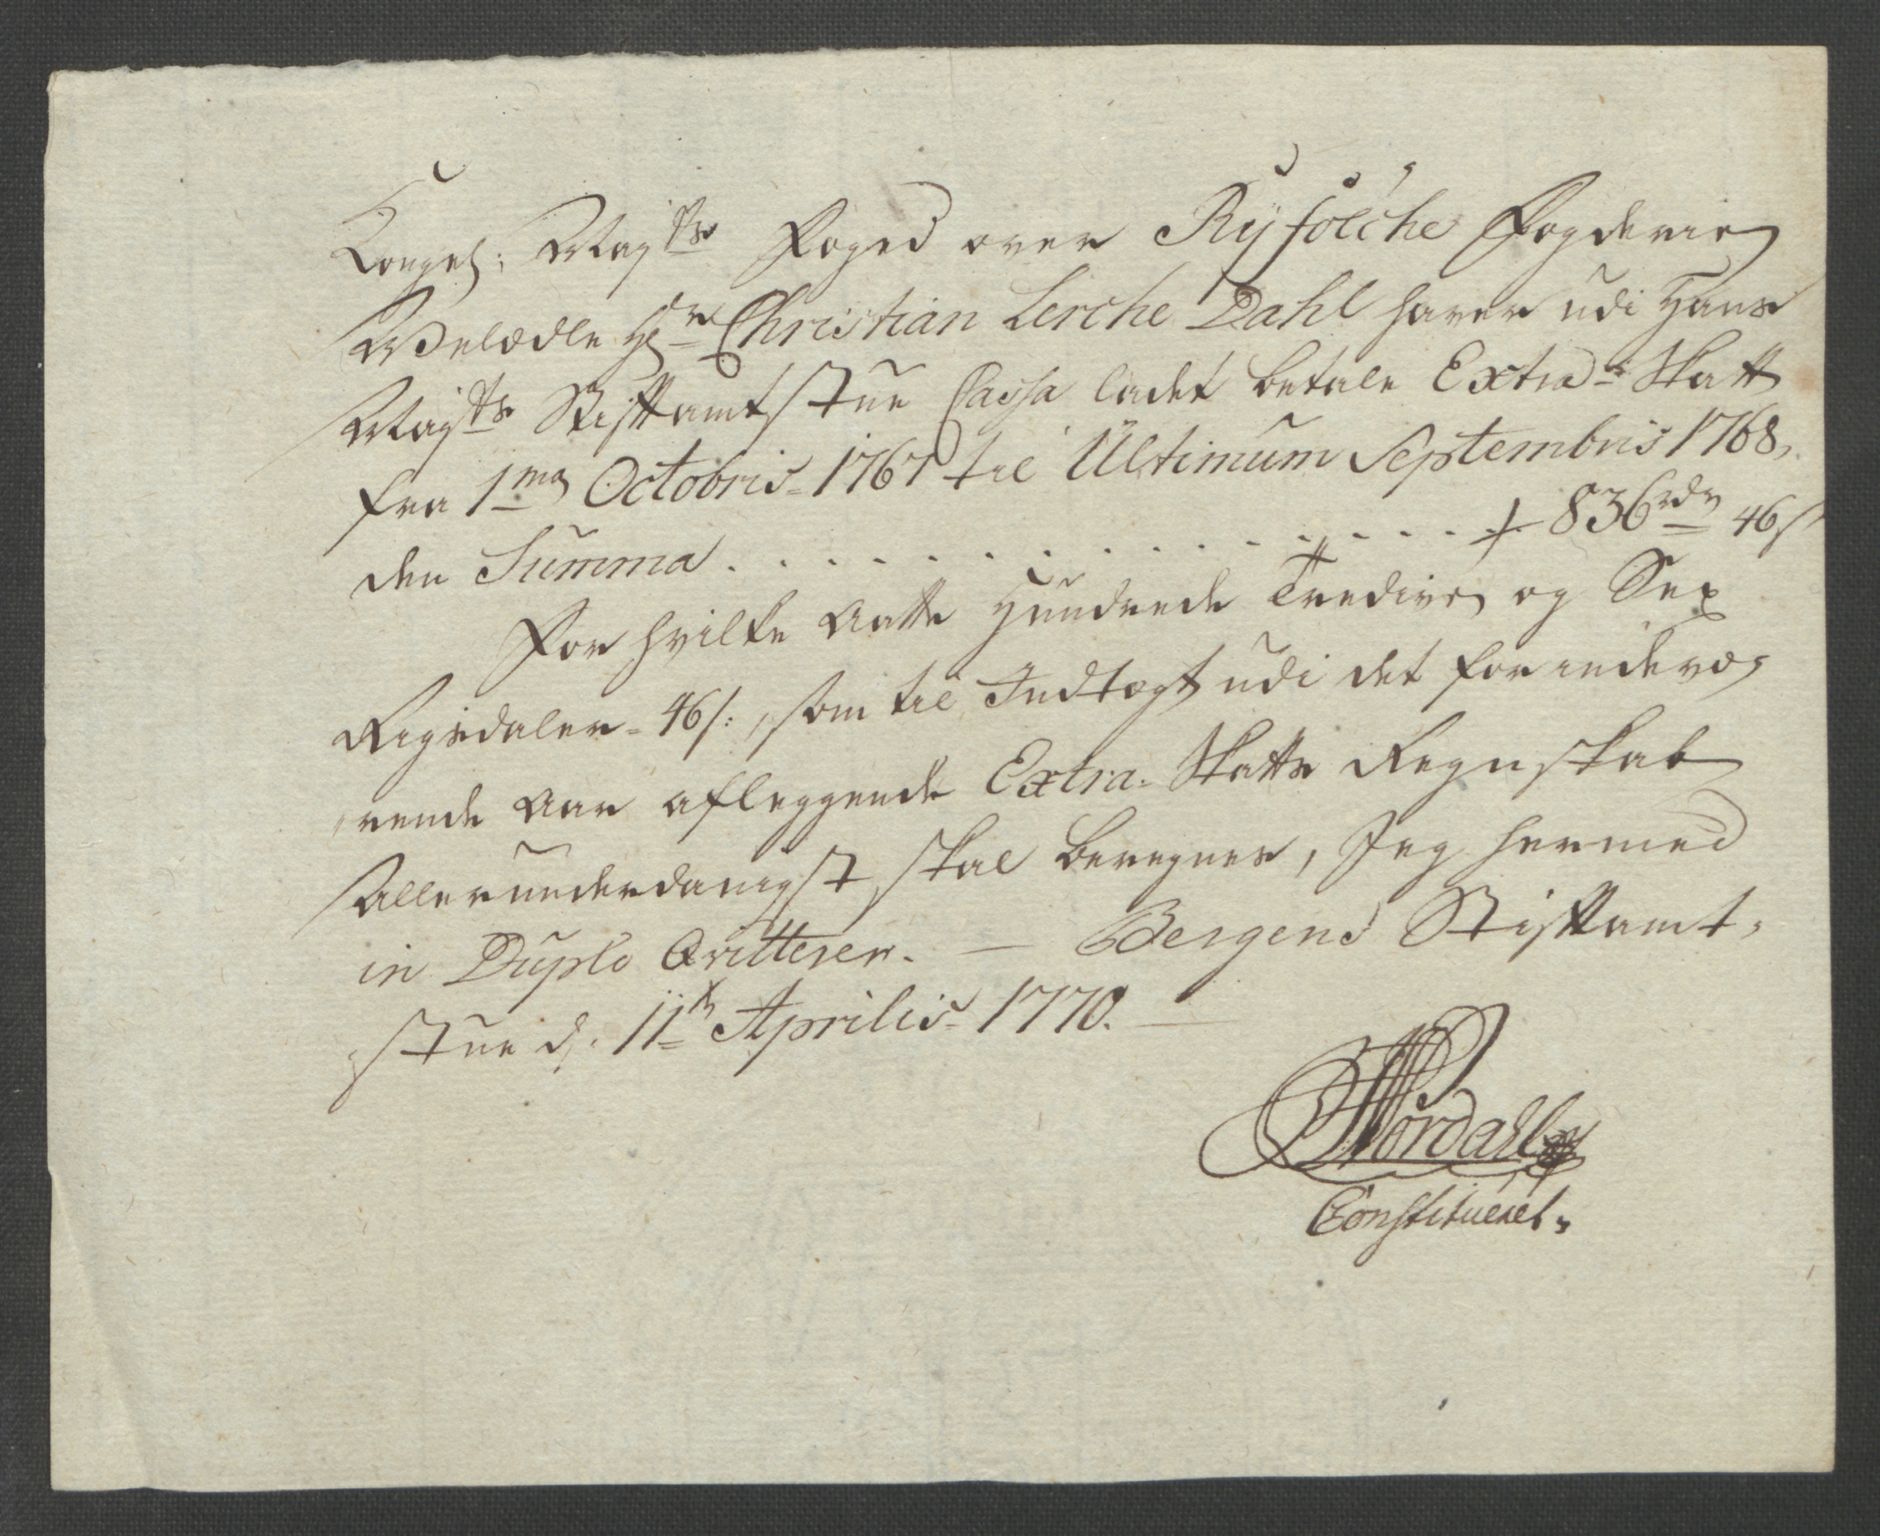 Kongel: Maysts Foged over Ryfölche Fogderie
Welædle Hr Christian Lerche Dahl haver udi Hans
Maysts Stiftamtstue Cassa ladet betale Extra- Skatt
fra 1ma Octobris 1767 til Ultimum Septembris 1768,
den Summa . . . . . . . . . . . . . . . 836 rdr 46 s
For hvilke Aatte Hundrede Tredive og Sex
Rigsdaler 46 s:, som til Indtægt udi det for indevæ-
rende Aar aflæggende Extra Skatts Regnskab
allerunderdanigst skal beregnes, Jeg hermed
in Duplo Qvitterer. — Bergens Stiftamt-
stue d. 11te Aprilis 1770. —
Nordahl
Constitueret.